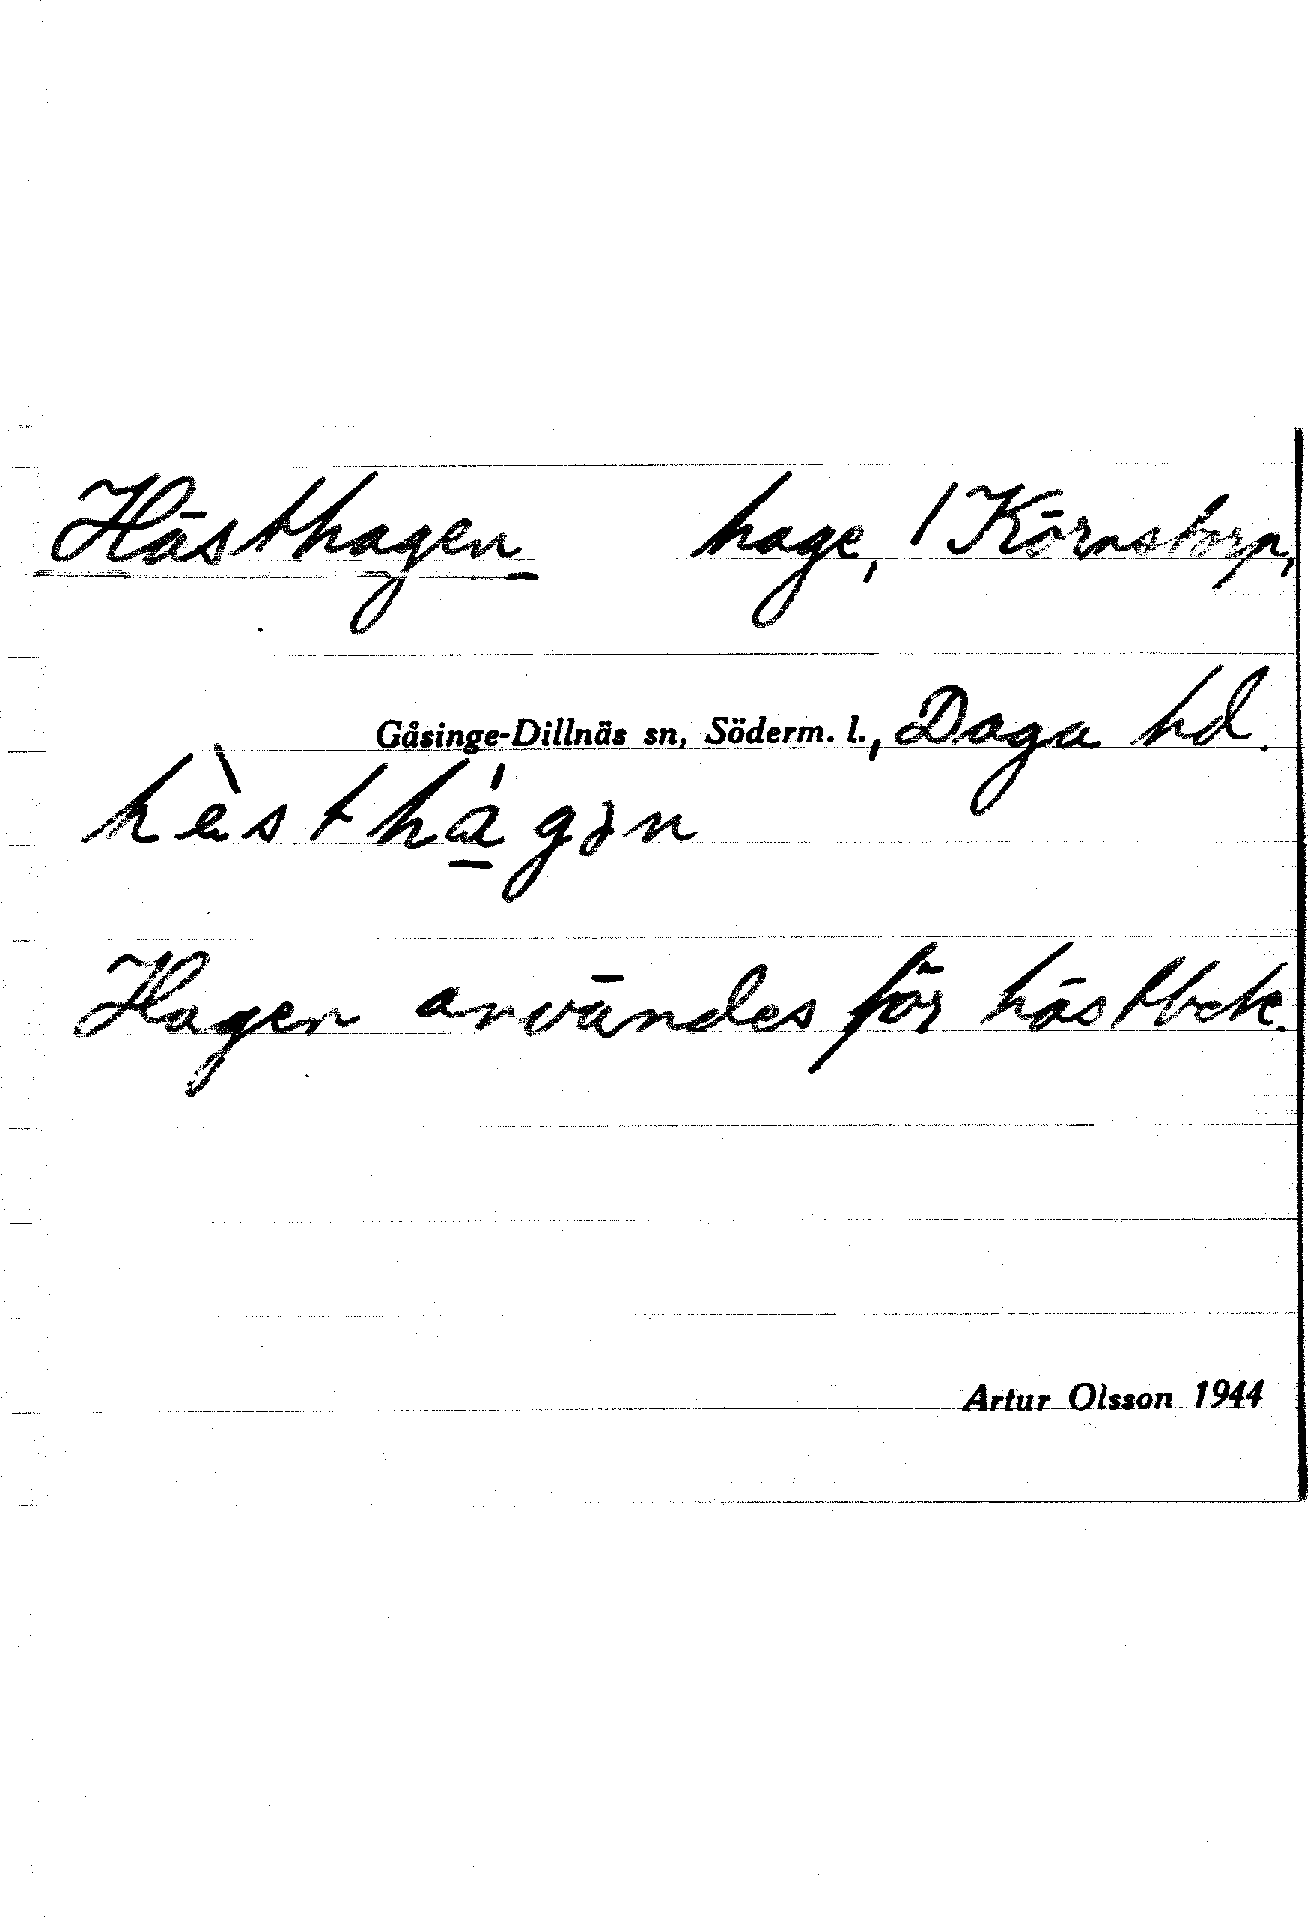 Hästhagen hage, / Körnstorp,
Gåsinge-Dillnäs sn, Söderm. l., Daga hd.
hèsthágən
Hagen användes för hästbete.
Artur Olsson 1944